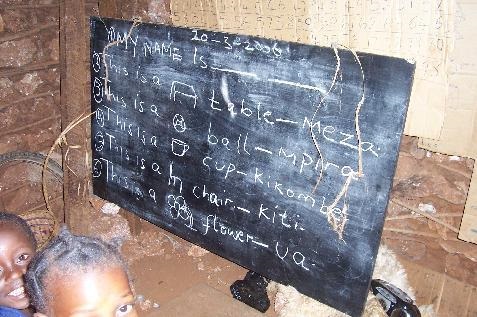 20-3-2006
① MY NAME is
② This is a table - meza.
③ This is a ball - mpira
④ This is a cup - Kikombe
⑤ This is a chair - kiti.
This is a flower - ua.